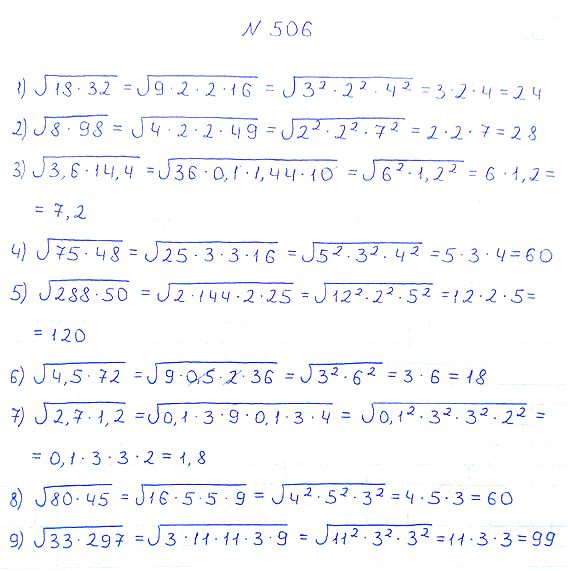 N 506
1) √18·32 = √9·2·2·16 = √3²·2²·4² = 3·2·4 = 24
2) √8·98 = √4·2·2·49 = √2²·2²·7² = 2·2·7 = 28
3) √3,6·14,4 = √36·0,1·1,44·10 = √6²·1,2² = 6·1,2 =
= 7,2
4) √75·48 = √25·3·3·16 = √5²·3²·4² = 5·3·4 = 60
5) √288·50 = √2·144·2·25 = √12²·2²·5² = 12·2·5 =
= 120
6) √4,5·72 = √9·0,5·2·36 = √3²·6² = 3·6 = 18
7) √2,7·1,2 = √0,1·3·9·0,1·3·4 = √0,1²·3²·3²·2² =
= 0,1·3·3·2 = 1,8
8) √80·45 = √16·5·5·9 = √4²·5²·3² = 4·5·3 = 60
9) √33·297 = √3·11·11·3·9 = √11²·3²·3² = 11·3·3 = 99